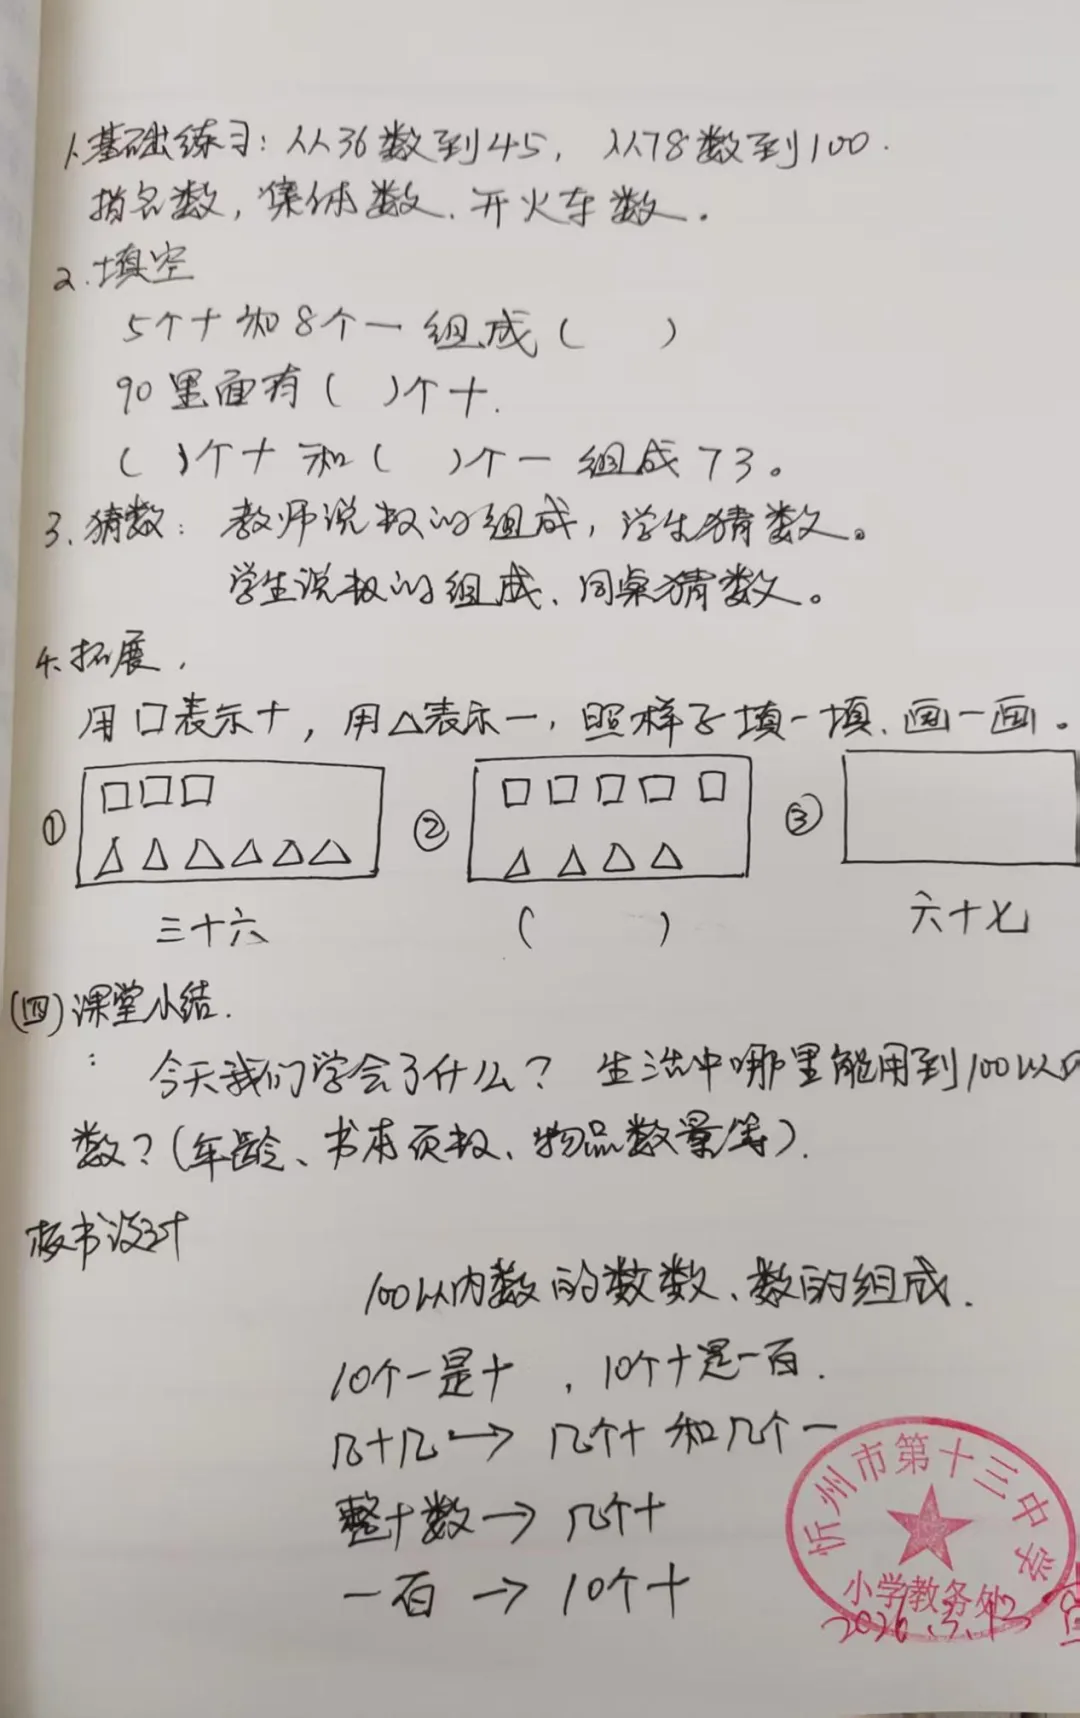 1.基础练习：从36数到45，从78数到100.
指名数，集体数、开火车数。
2.填空
5个十和8个一组成（ ）
90里面有（ ）个十.
（ ）个十和（ ）个一组成73。
3、猜数：教师说数的组成，学生猜数。
学生说数的组成、同桌猜数。
4.拓展，
用口表示十，用△表示一，照样子填一填、画一画。
① ② ③
三十六 （ ） 六十七
(四)课堂小结.
今天我们学会了什么？生活中哪里能用到100以内
数？(年龄、书本页数、物品数量等).
板书设计
100以内数的数数、数的组成.
10个一是十，10个十是一百.
几十几→几个十和几个一
整十数→几个十
一百→10个十
忻州市第十三中学
小学教务处
2026.3.13